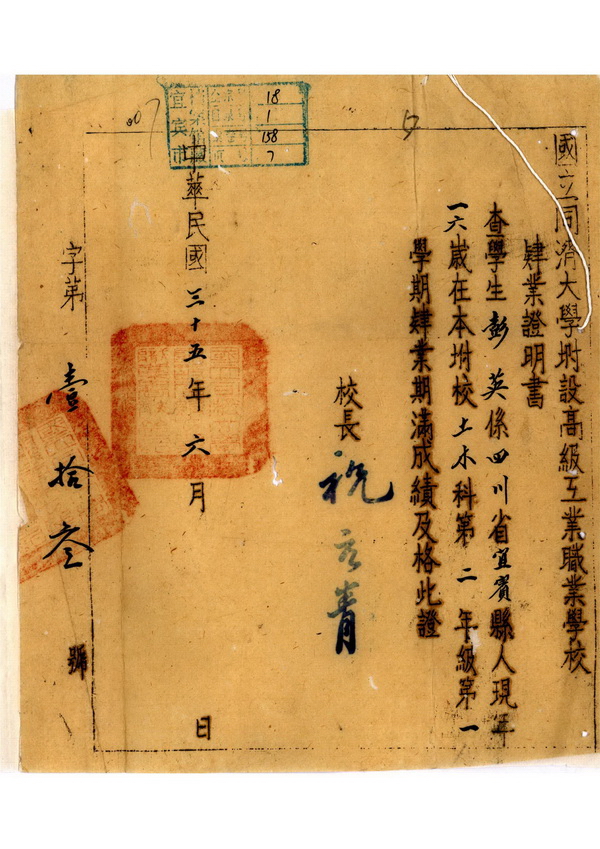 國立同濟大學坿設高級工業職業學校
肄業證明書
查學生彭英係四川省宜賓縣人現年
一六歲在本坿校土木科第二年級第一
學期肄業期滿成績及格此證
校長
中華民國三十五年六月 日
字第壹拾叁號
宜賓市
18
1
158
7